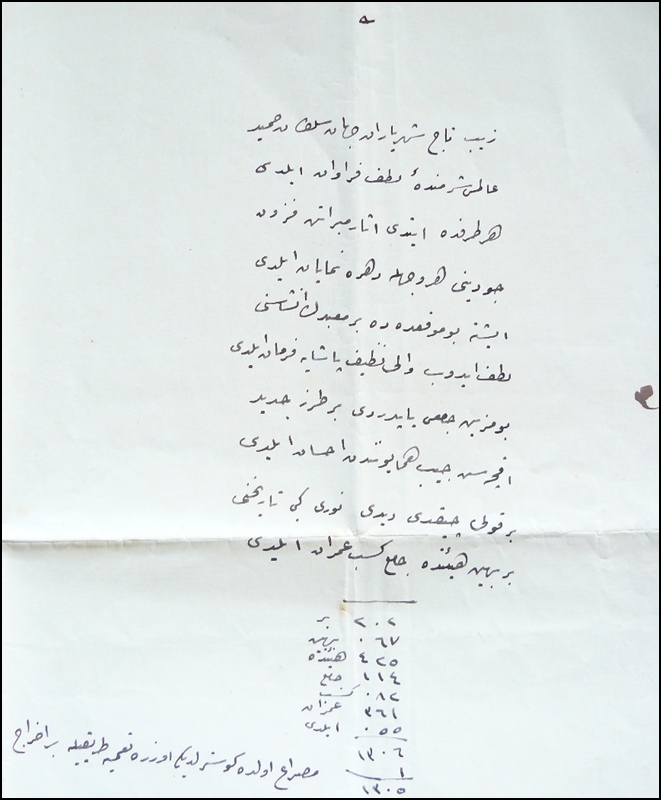 زیب تاج شهریاران جهان سلطان حمید
عالمی شرمندۀ لطف فراوان ایلدی
هر طرفده ایتدی اثار مبراتن فزون
جودینی هر وجهله دهره نمایان ایلدی
ایشته بو موقعده ده بر معبدك انشاسنی
لطف ایدوب والی نظیف پاشایه فرمان ایلدی
بو مزین جامعی یاپدردی بر طرز جدید
اقچه سن جیب همایونندن احسان ایلدی
بر قولی چیقدی دیدی نوری کبی تاریخنی
بر بهین هیئتده جامع کسب عمران ایلدی
٢٠٢ بر
٠٦٧ بهین
٤٢٥ هیئتده
١١٤ جامع
٠٨٢ کسب
٣٦١ عمران
٠٥٥ ایلدی
١٣٠٦
١ مصراع اولده کوستریلدیکی اوزره تعمیه طریقیله بر اخراج
١٣٠٥